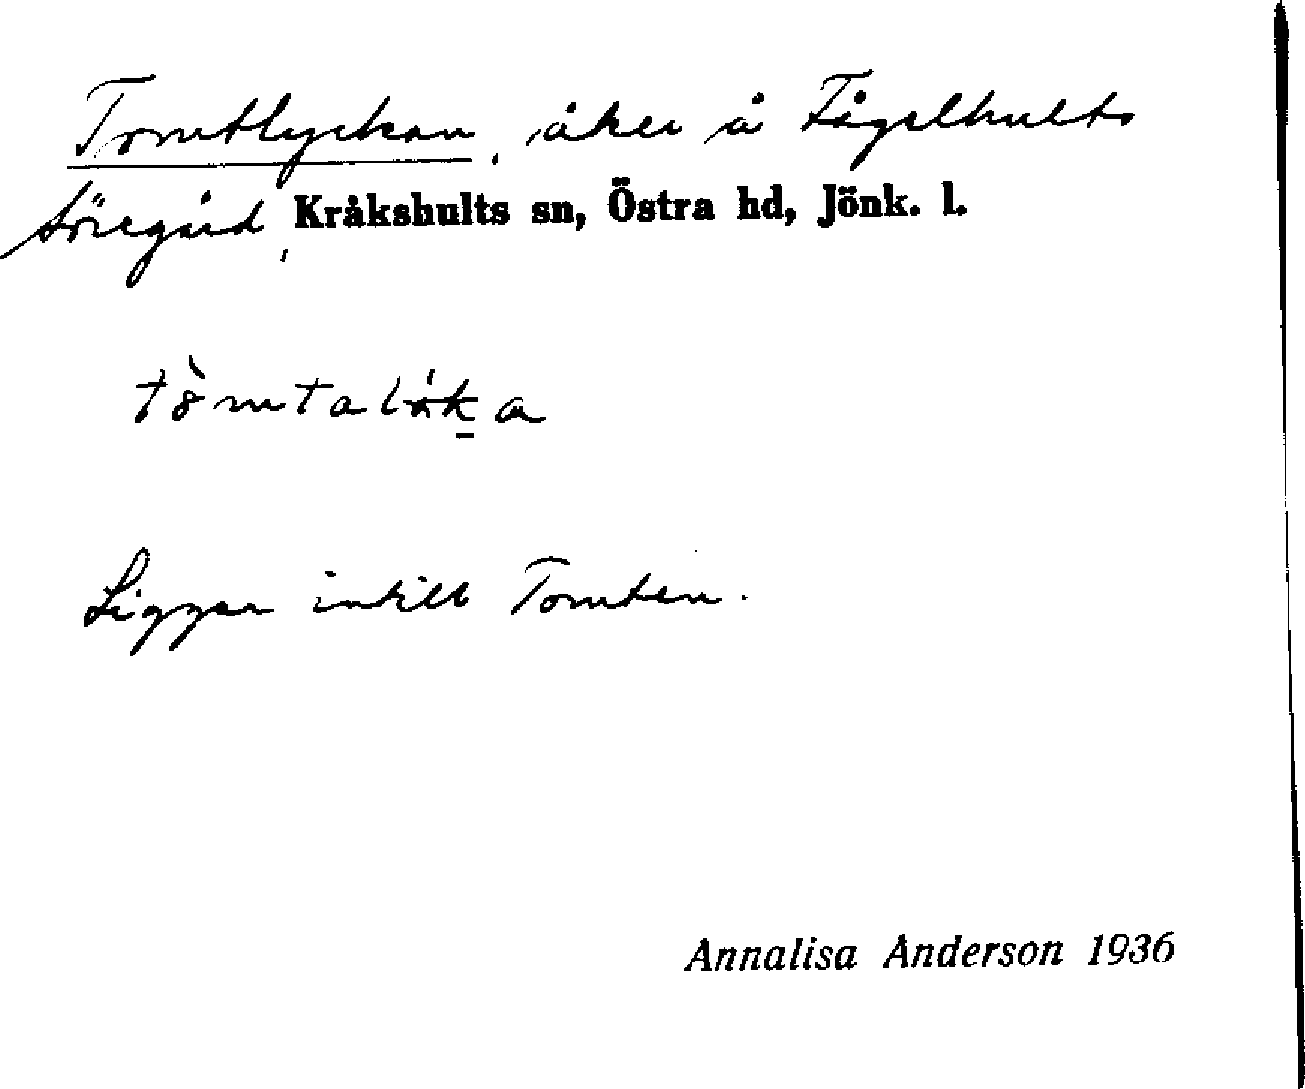 Tomtlyckan, åker å Fågelhults
söregård, Kråkshults sn, Östra hd, Jönk. l.
Ligger intill Tomten.
Annalisa Anderson 1936